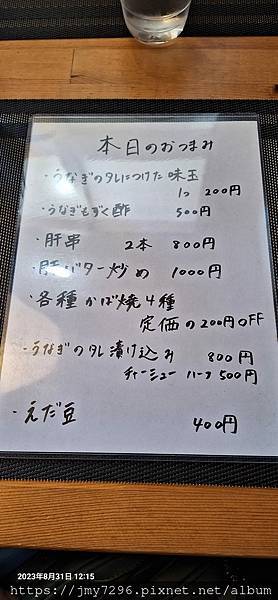 本日のおつまみ
・うなぎのタレにつけた 味玉
1つ 200円
・うなぎもずく酢 500円
・肝串 2本 800円
・肝バター炒め 1000円
・各種 かば焼4種
定価の200円OFF
・うなぎのタレ漬け込み 800円
チャーシュー ハーフ 500円
・えだ豆 400円
2023年8月31日 12:15
https://jmy7296.pixnet.net/album